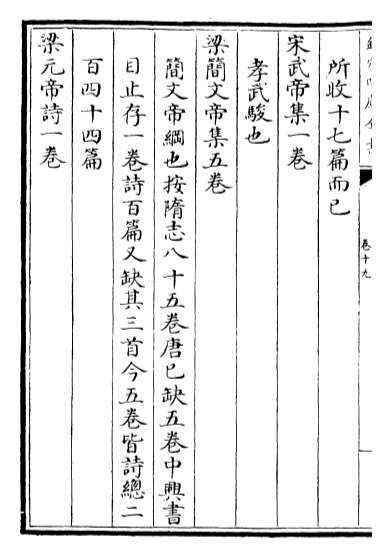 卷十九
所收十七篇而已
宋武帝集一卷
孝武駿也
梁簡文帝集五卷
簡文帝綱也按隋志八十五卷唐已缺五卷中興書
目止存一卷詩百篇又缺其三首今五卷皆詩總二
百四十四篇
梁元帝詩一卷